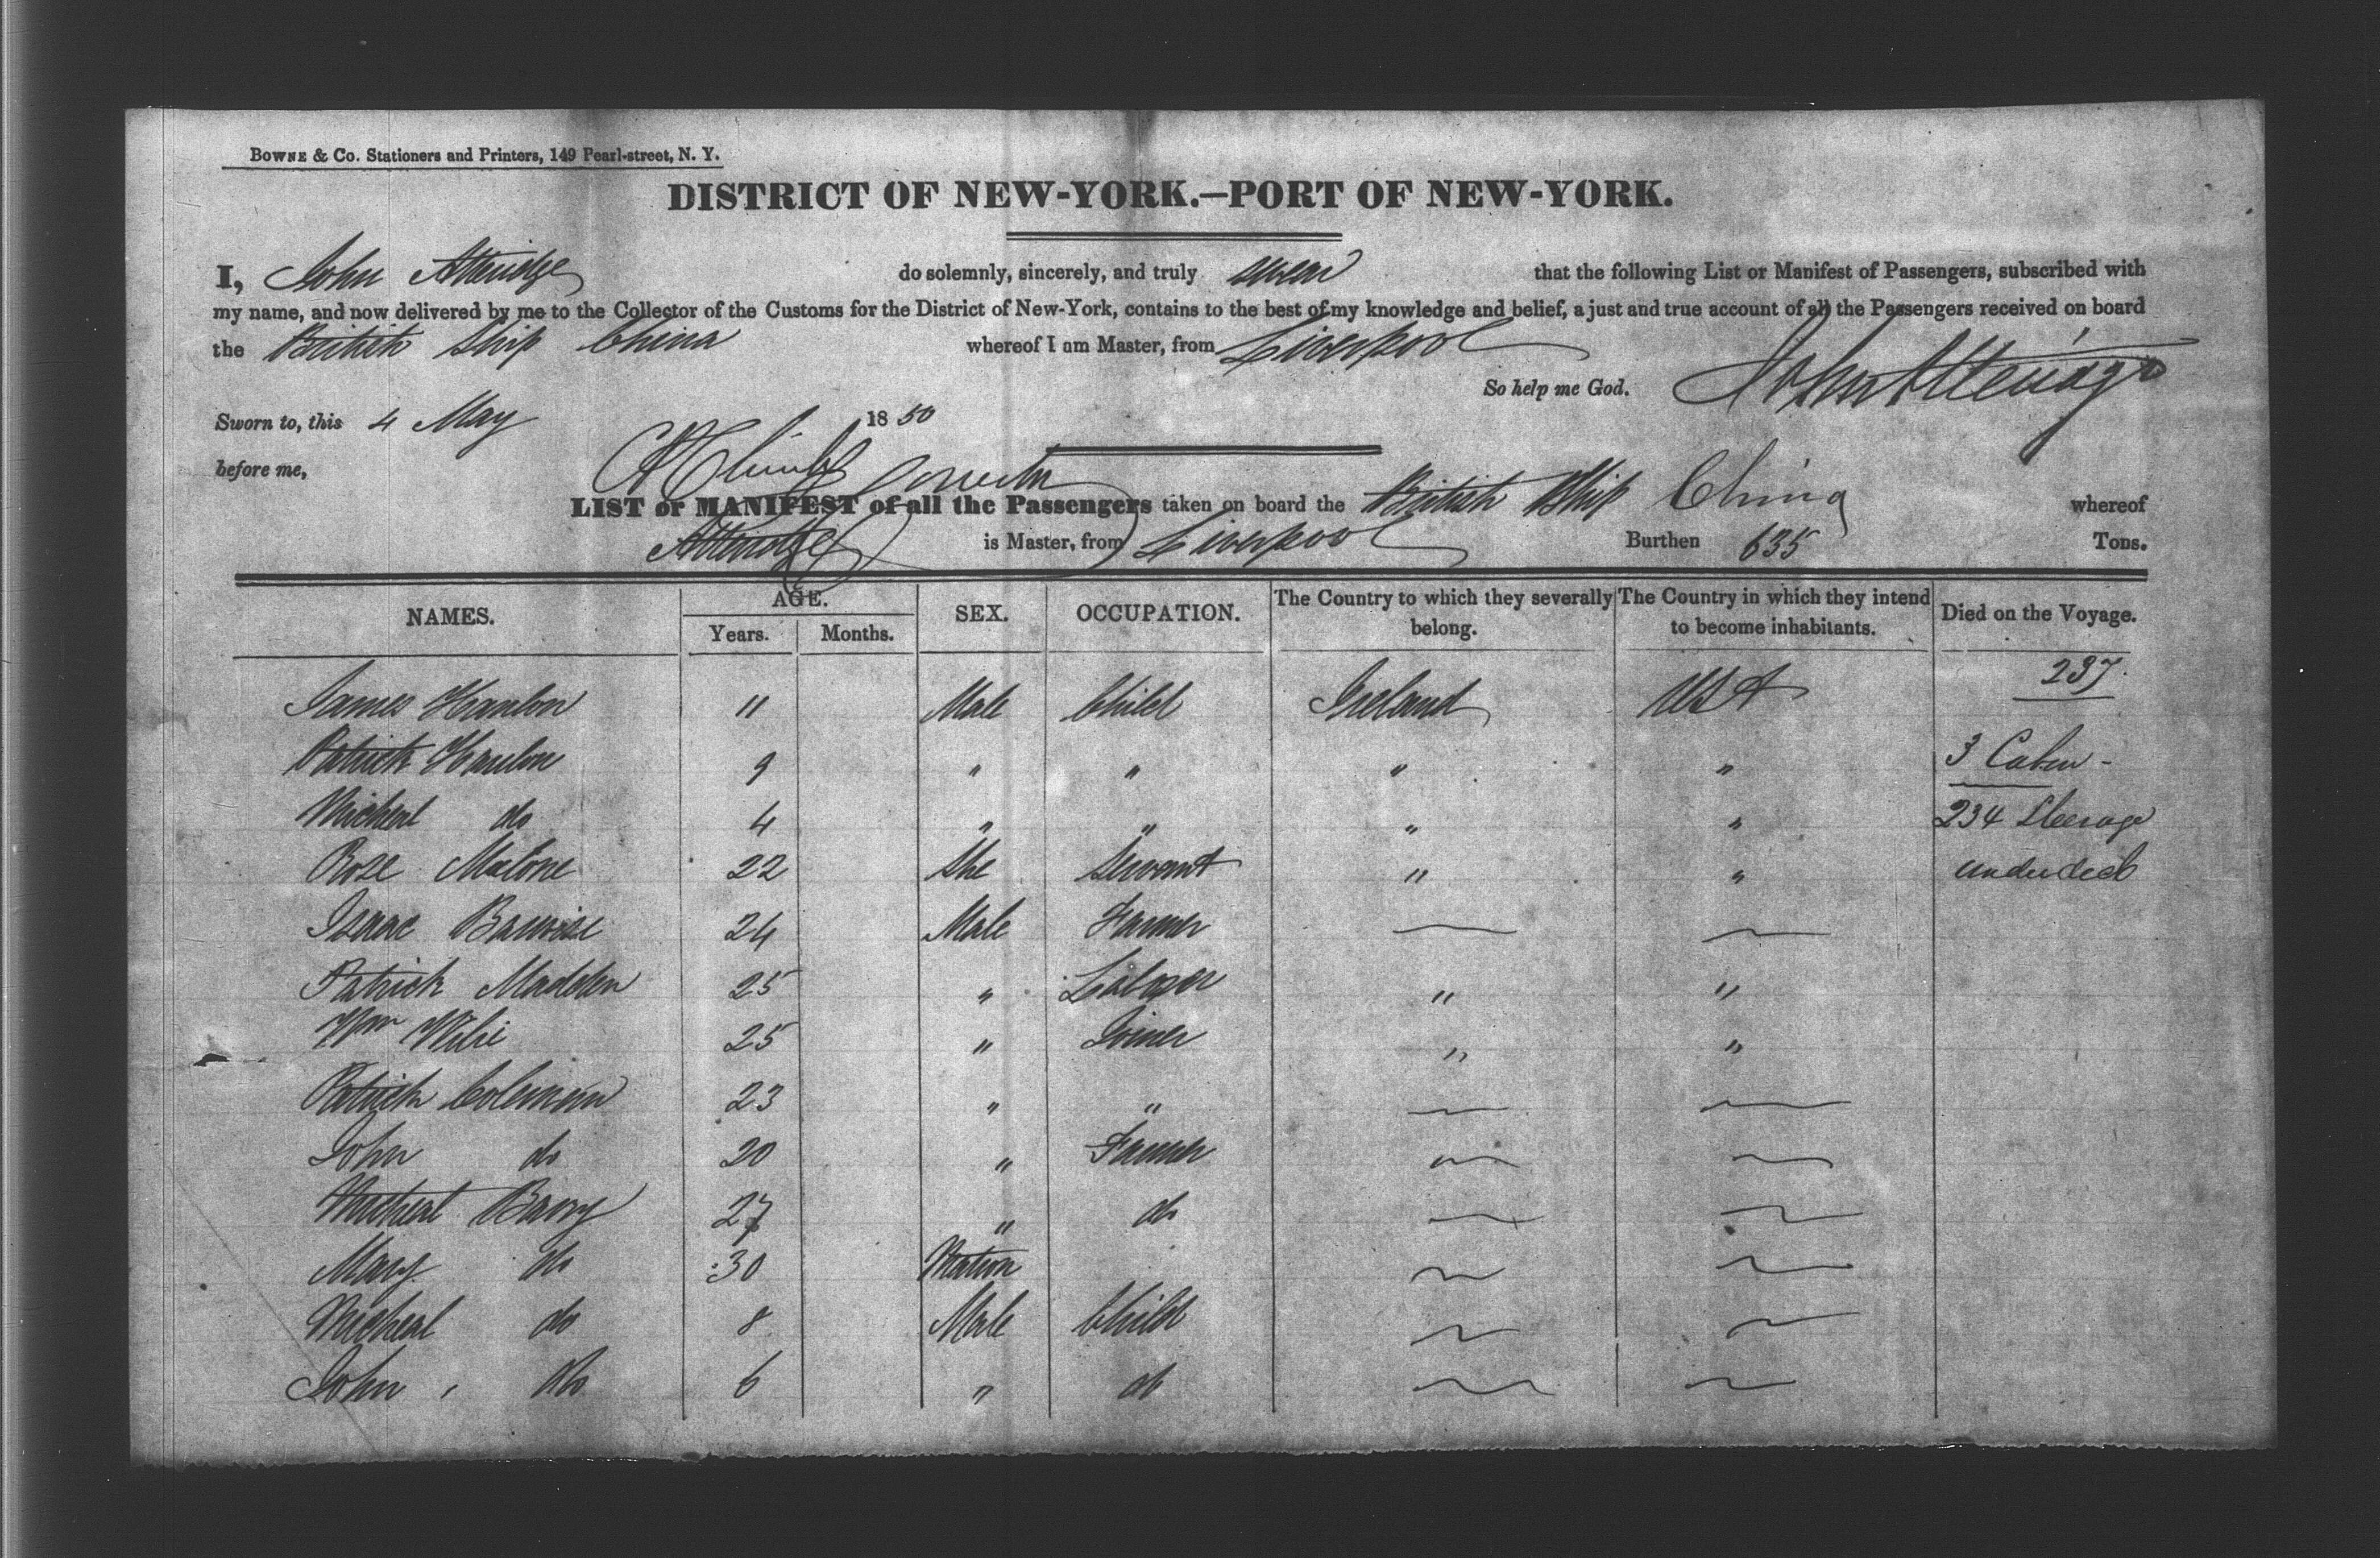 BOWNE & CO. Stationers and Printers, 149 Pearl-street, N. Y.
DISTRICT OF NEW-YORK.—PORT OF NEW-YORK.
I, John Attridge do solemnly, sincerely, and truly swear that the following List or Manifest of Passengers, subscribed with
my name, and now delivered by me to the Collector of the Customs for the District of New-York, contains to the best of my knowledge and belief, a just and true account of all the Passengers received on board
the British Ship China whereof I am Master, from Liverpool
So help me God. John Attridge
Sworn to, this 4 May 1850
before me,
LIST or MANIFEST of all the Passengers taken on board the British Ship China whereof
Attridge is Master, from Liverpool Burthen 635 Tons.
NAMES. AGE. Years. Months. SEX. OCCUPATION. The Country to which they severally belong. The Country in which they intend to become inhabitants. Died on the Voyage.
237
James Hanlon 11 Male Child Ireland USA
Patrick Hanlon 9 " " " " 3 Cabin -
Micheal do 4 " " " " 234 Steerage
Rose Malone 22 She Servant " " under deck
Isaac 24 Male Farmer
Patrick Madden 25 " Laborer " "
Wm 25 " Joiner " "
Patrick Coleman 23 " "
John do 20 " Farmer
Micheal Barry 27 " do
Mary do 30 Matron
Micheal do 8 Male Child
John do 6 " do